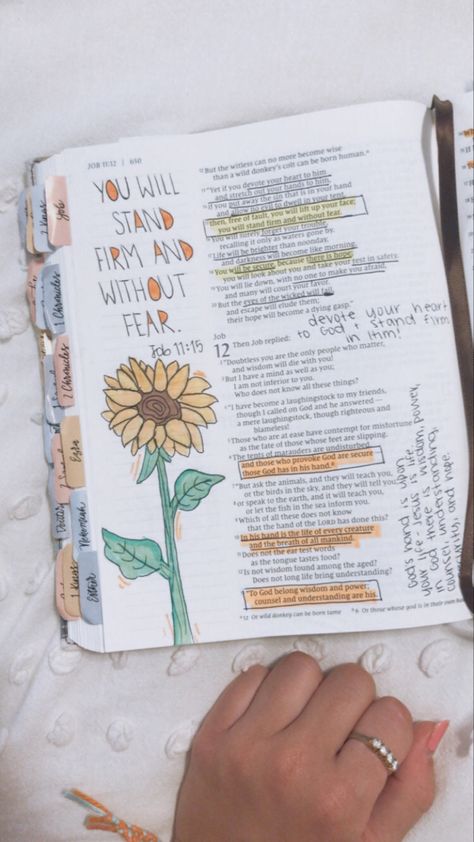 JOB 11:12 | 650
YOU WILL
STAND
FIRM AND
WITHOUT
FEAR.
Job 11:15
¹²But the witless can no more become wise
than a wild donkey's colt can be born human.ᵃ
¹³"Yet if you devote your heart to him
and stretch out your hands to him,
¹⁴if you put away the sin that is in your hand
and allow no evil to dwell in your tent,
¹⁵then, free of fault, you will lift up your face;
you will stand firm and without fear.
¹⁶You will surely forget your trouble,
recalling it only as waters gone by.
¹⁷Life will be brighter than noonday,
and darkness will become like morning.
¹⁸You will be secure, because there is hope;
you will look about you and take your rest in safety.
¹⁹You will lie down, with no one to make you afraid,
and many will court your favor.
²⁰But the eyes of the wicked will fail,
and escape will elude them;
their hope will become a dying gasp."
devote your heart
to God + stand firm
in Him!
Job
12 Then Job replied:
²"Doubtless you are the only people who matter,
and wisdom will die with you!
³But I have a mind as well as you;
I am not inferior to you.
Who does not know all these things?
⁴"I have become a laughingstock to my friends,
though I called on God and he answered —
a mere laughingstock, though righteous and
blameless!
⁵Those who are at ease have contempt for misfortune
as the fate of those whose feet are slipping.
⁶The tents of marauders are undisturbed,
and those who provoke God are secure
those God has in his hand.ᵇ
⁷"But ask the animals, and they will teach you,
or the birds in the sky, and they will tell you;
⁸or speak to the earth, and it will teach you,
or let the fish in the sea inform you.
⁹Which of all these does not know
that the hand of the LORD has done this?
¹⁰In his hand is the life of every creature
and the breath of all mankind.
¹¹Does not the ear test words
as the tongue tastes food?
¹²Is not wisdom found among the aged?
Does not long life bring understanding?
¹³"To God belong wisdom and power;
counsel and understanding are his.
God's hand is upon
your life - Jesus is life.
in God there is wisdom, power,
counsel, understanding,
and hope.
ᵃ12 Or wild donkey can be born tame
ᵇ6 Or those whose god is in their own
Job
1 Chronicles
2 Chronicles
Ezra
Nehemiah
Esther
1 Kings